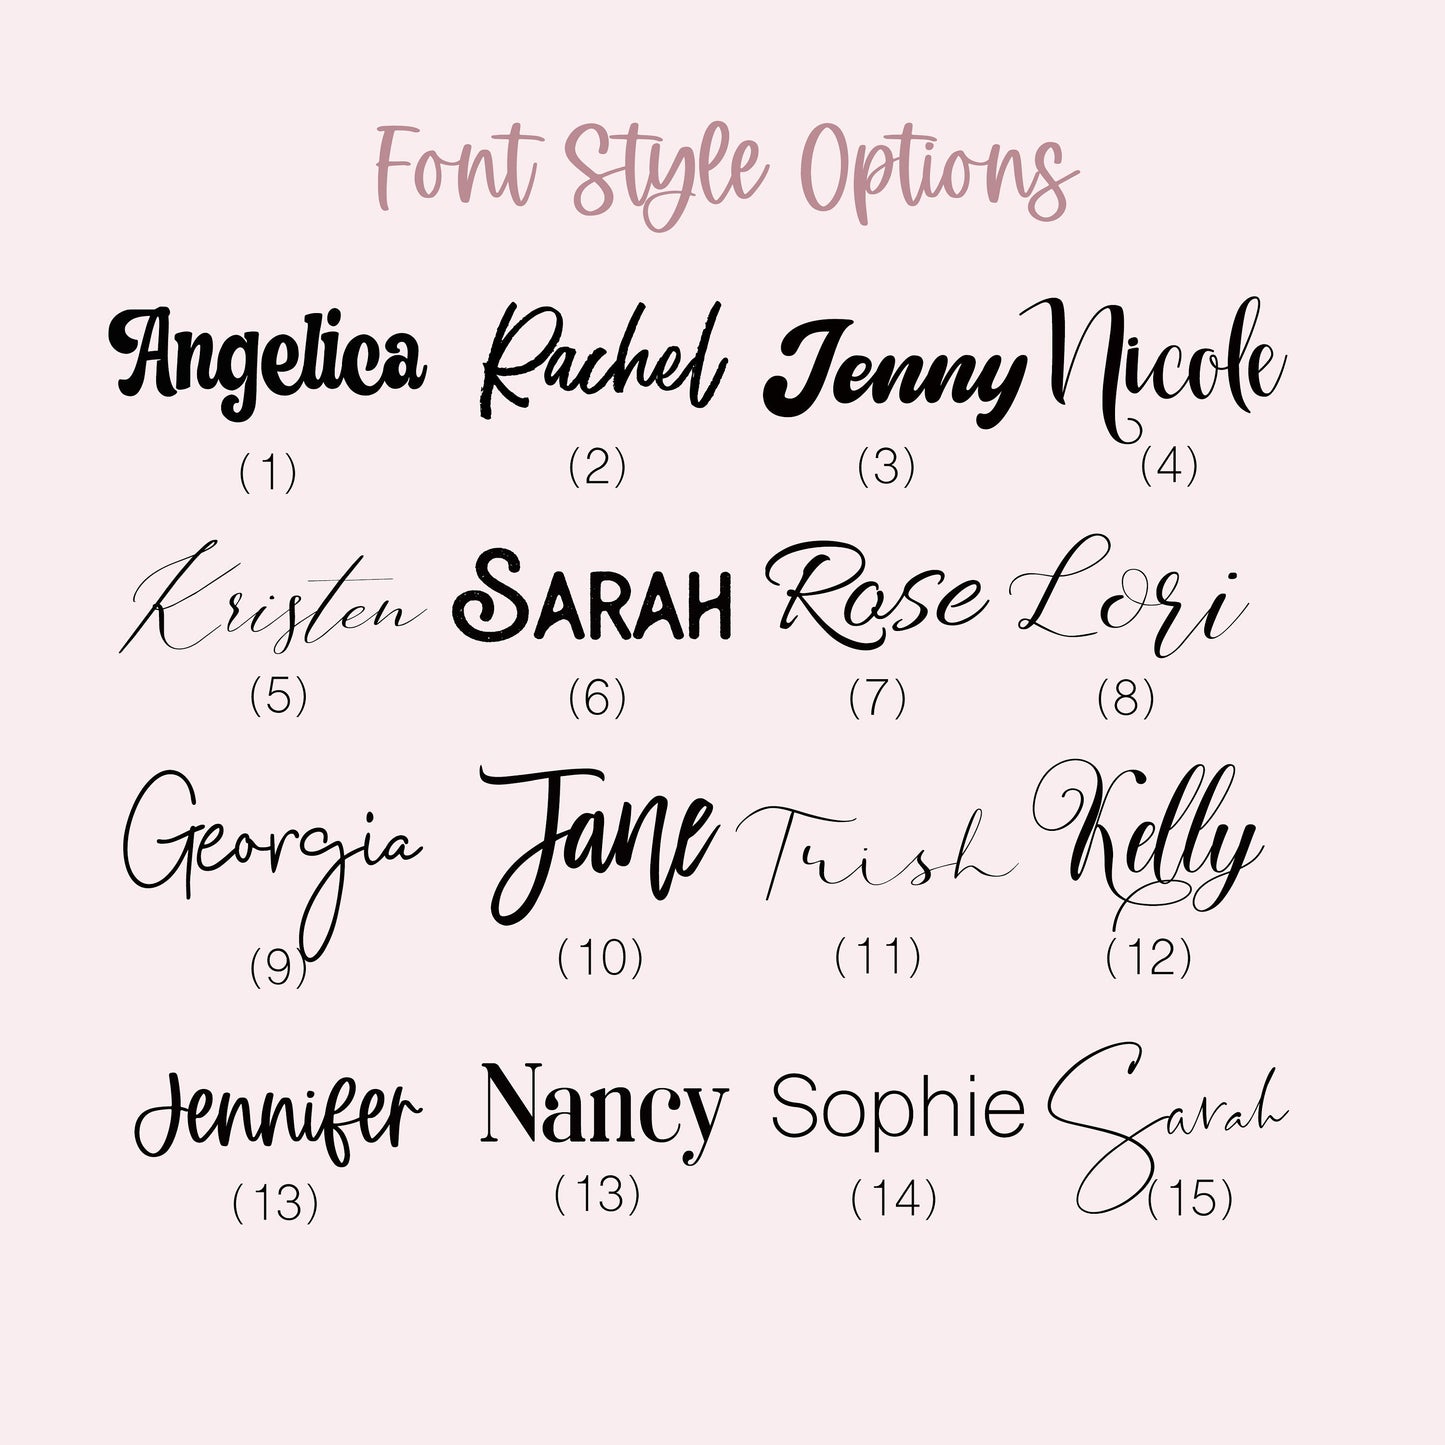 Font Style Options
Angelica Rachel Jenny Nicole
(1) (2) (3) (4)
Kristen SARAH Rose Lori
(5) (6) (7) (8)
Georgia Jane Trish Kelly
(9) (10) (11) (12)
Jennifer Nancy Sophie Sarah
(13) (13) (14) (15)